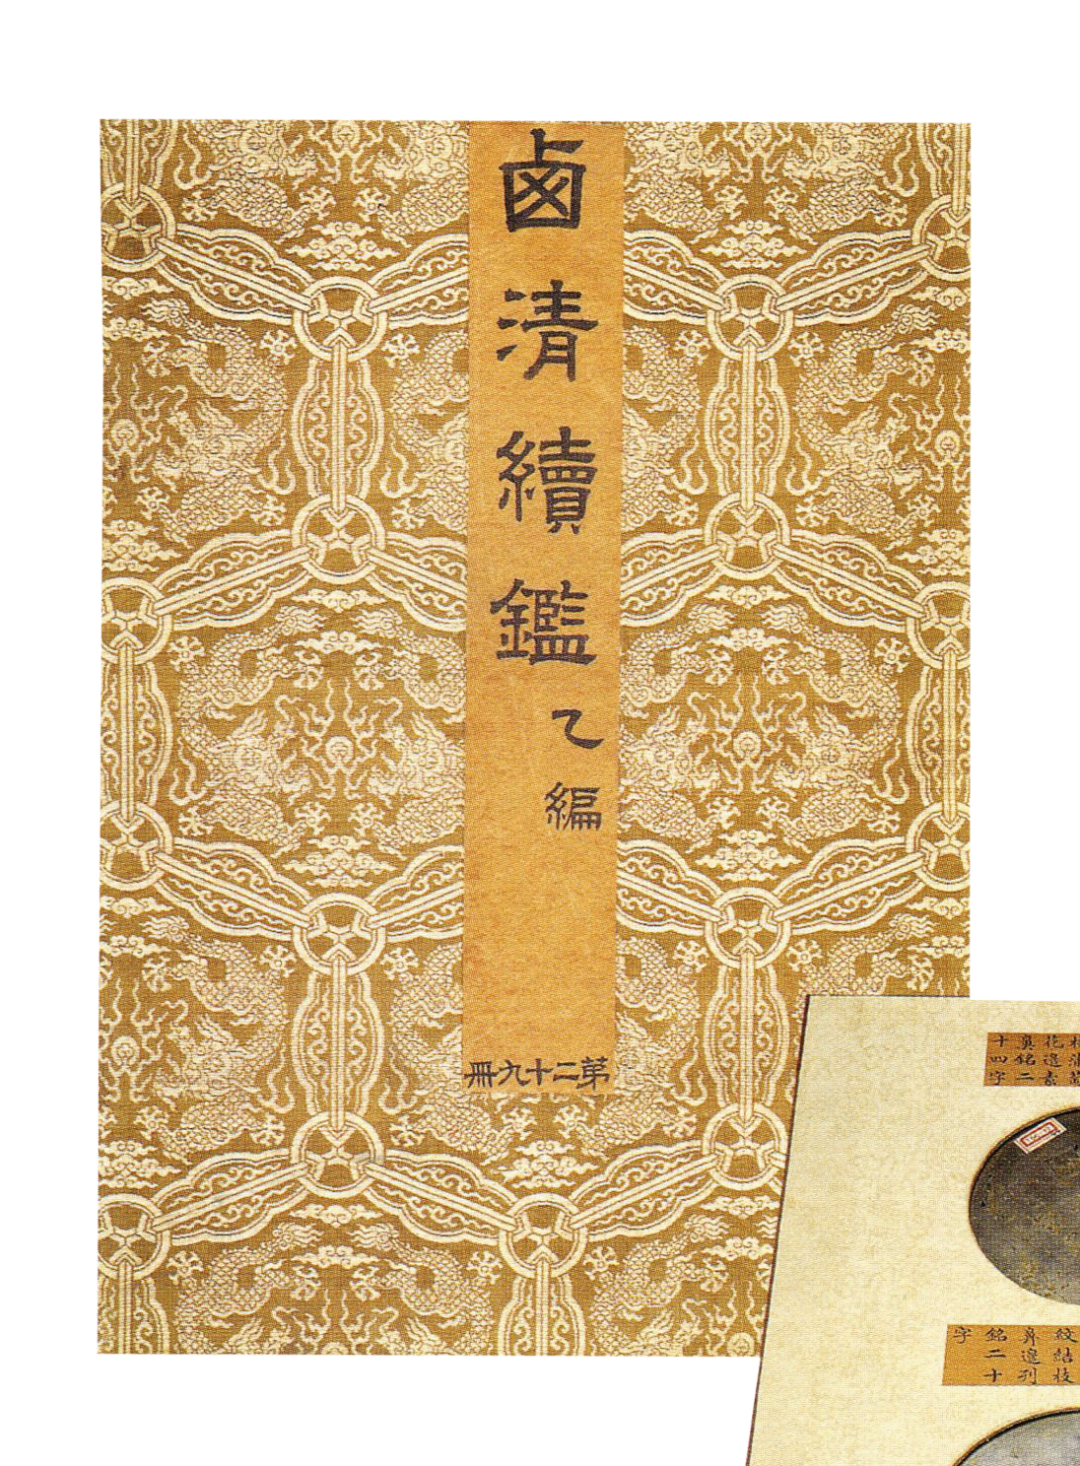 卥清續鑑
乙編
苐二十九冊
花邊素
鼻銘二
十四字
紋結枝
鼻邊列
銘二十
字